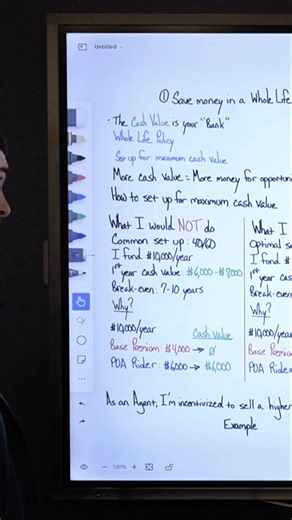 Untitled
① Save money in a Whole Life
- The Cash Value is your "Bank"
Whole Life Policy
Set up for maximum cash value
More cash value = More money for opportun
How to set up for maximum cash value
What I would NOT do
Common set up: 40/60
I fund $10,000/year
1st year cash value: $6,000 -
Break-even: 7-10 years
Why?
$10,000/year
Cash Value
Base Premium: $4,000 → 0
PUA Rider: $6,000 → $6,000
What I
Optimal se
I fund $
1st year cas
Break-even
Why?
$10,000/year
Base Premiu
PUA Rider
As an Agent, I'm incentivized to sell a higher
Example
100%